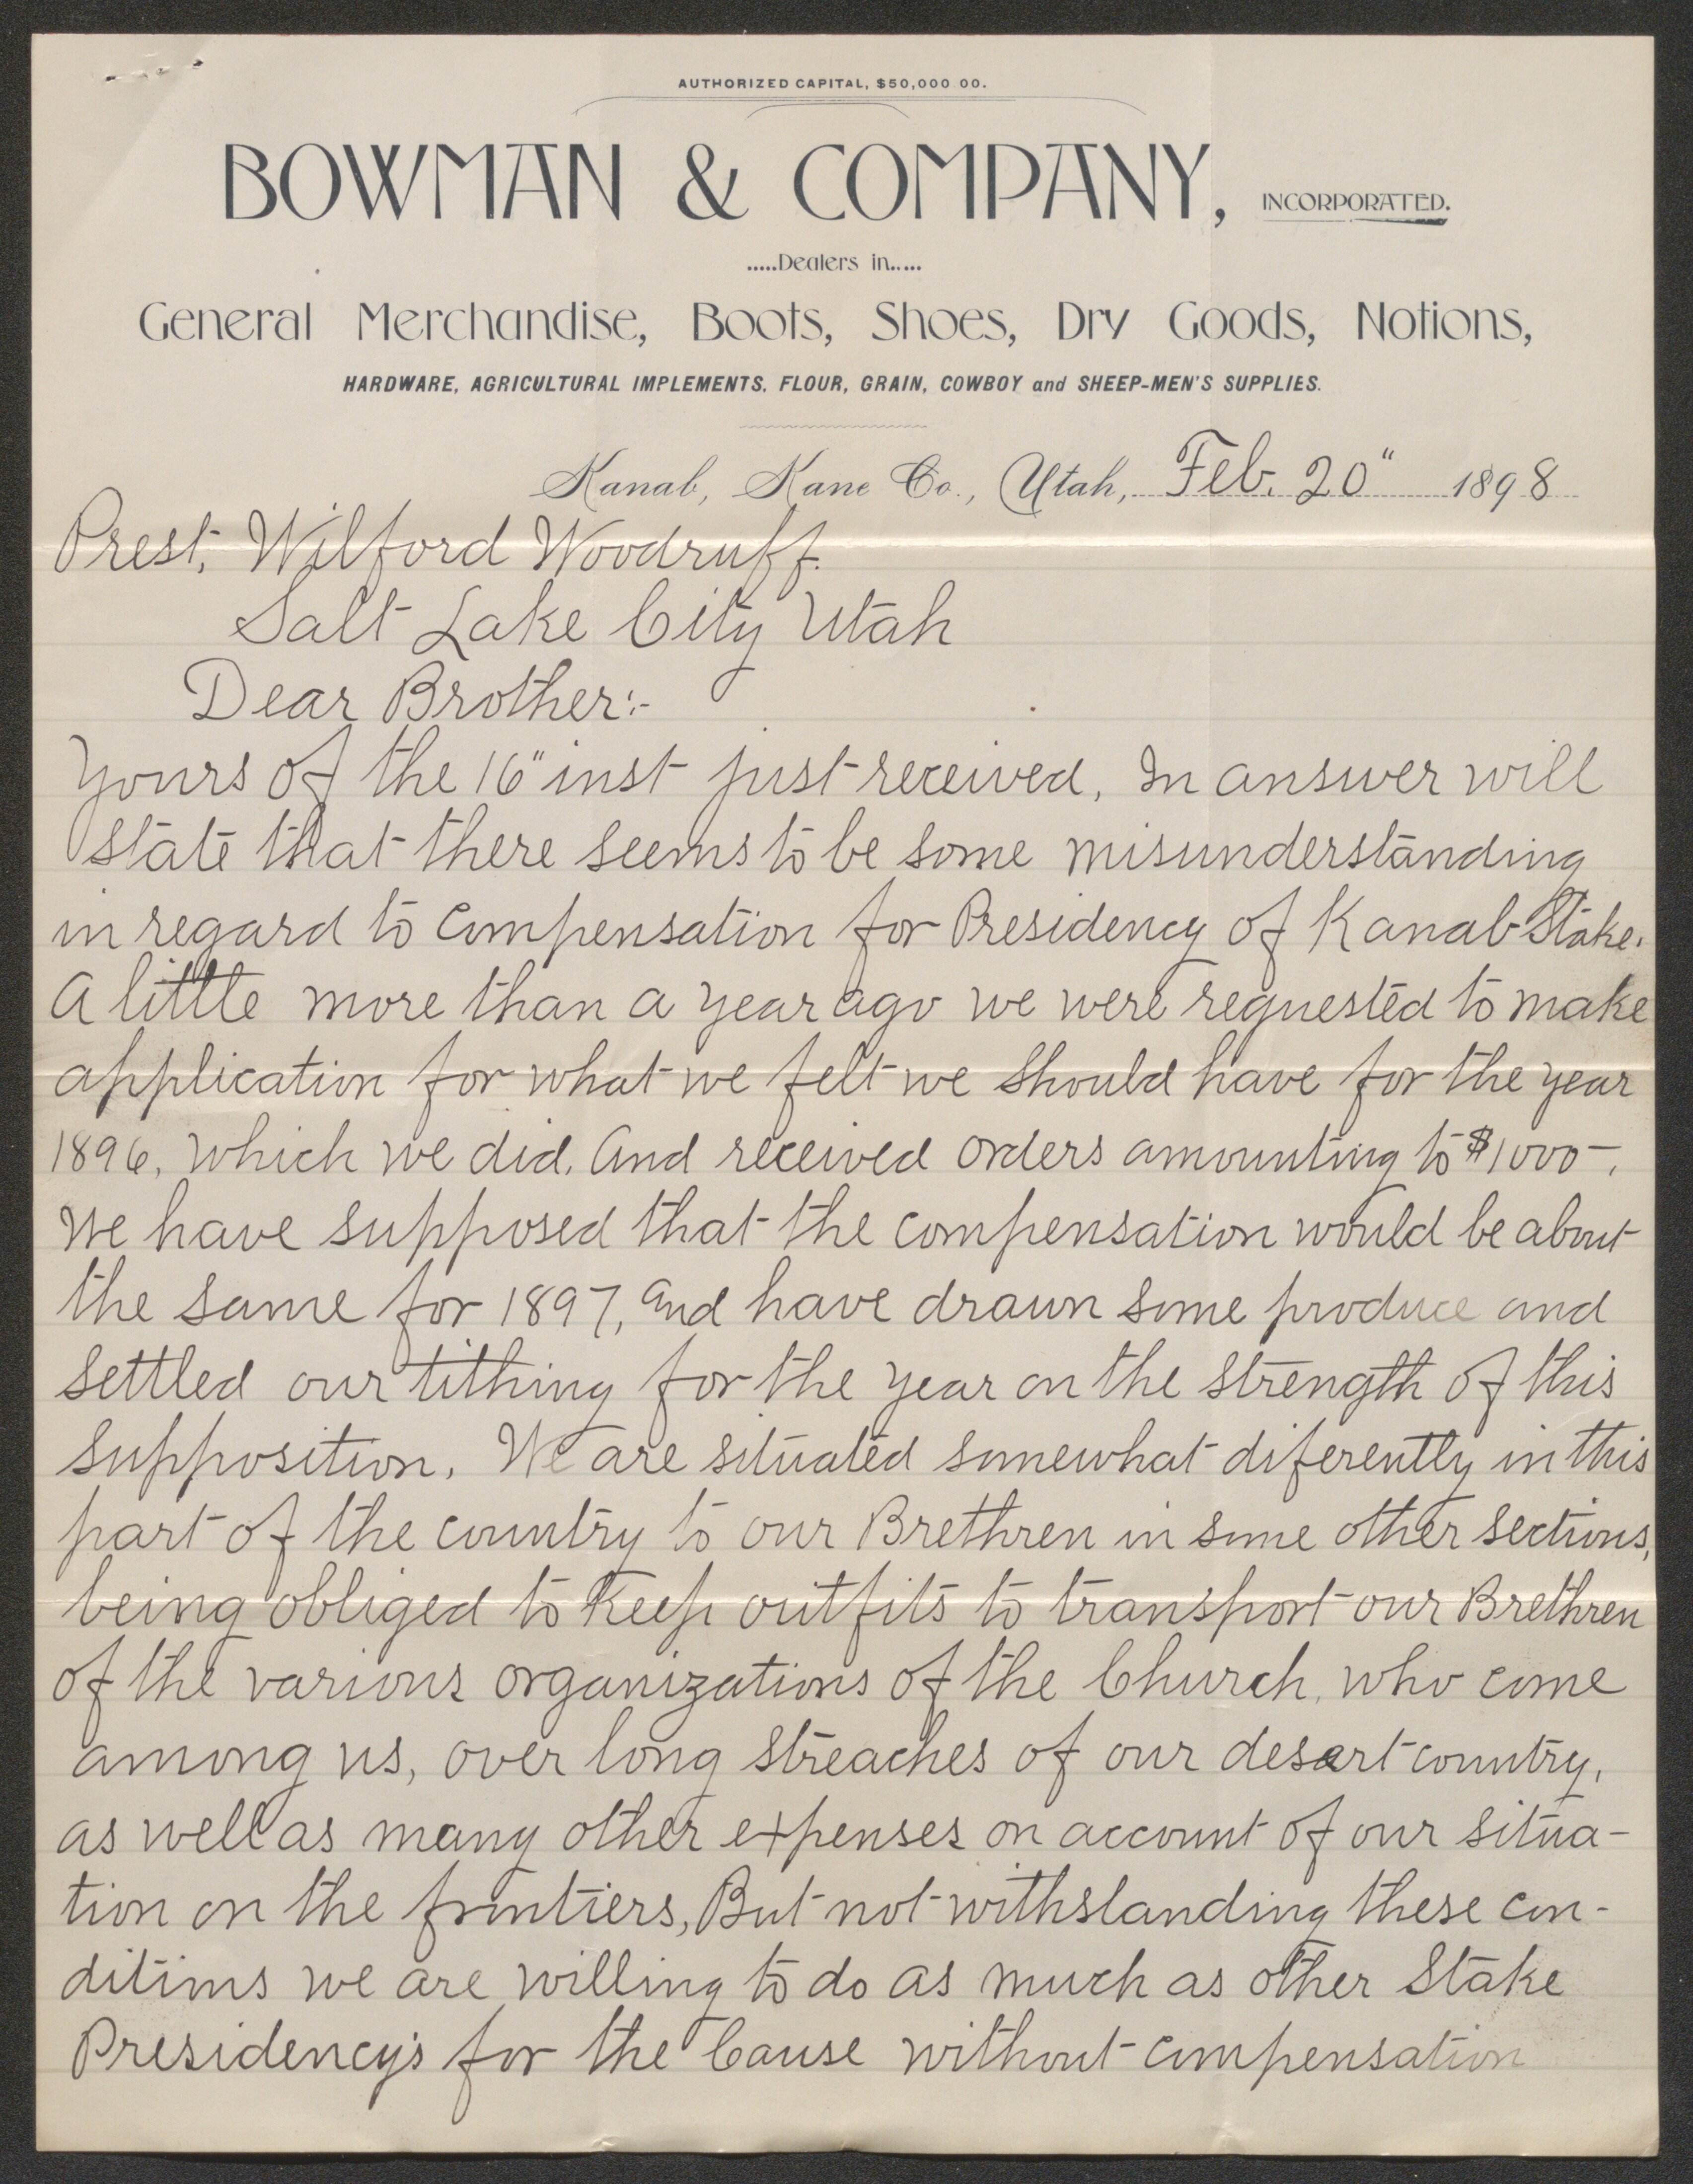 AUTHORIZED CAPITAL, $50,000 00.
BOWMAN & COMPANY, INCORPORATED.
.....Dealers in.....
General Merchandise, Boots, Shoes, Dry Goods, Notions,
HARDWARE, AGRICULTURAL IMPLEMENTS, FLOUR, GRAIN, COWBOY and SHEEP-MEN'S SUPPLIES.
Kanab, Kane Co., Utah, Feb. 20" 1898
Prest. Wilford Woodruff.
Salt Lake City Utah
Dear Brother:-
Yours of the 16" inst just received, In answer will
state that there seems to be some misunderstanding
in regard to Compensation for Presidency of Kanab Stake.
A little more than a year ago we were requested to make
application for what we felt we should have for the year
1896, which we did. And received orders amounting to $1000-.
We have supposed that the compensation would be about
the same for 1897, And have drawn some produce and
settled our tithing for the year on the strength of this
supposition. We are situated somewhat diferently in this
part of the country to our Brethren in some other sections,
being obliged to keep outfits to transport our Brethren
of the various organizations of the Church, who come
among us, over long streaches of our desert country,
as well as many other expenses on account of our situa-
tion on the frontiers, But not withstanding these con-
ditions we are willing to do as much as other Stake
Presidency's for the Cause without compensation